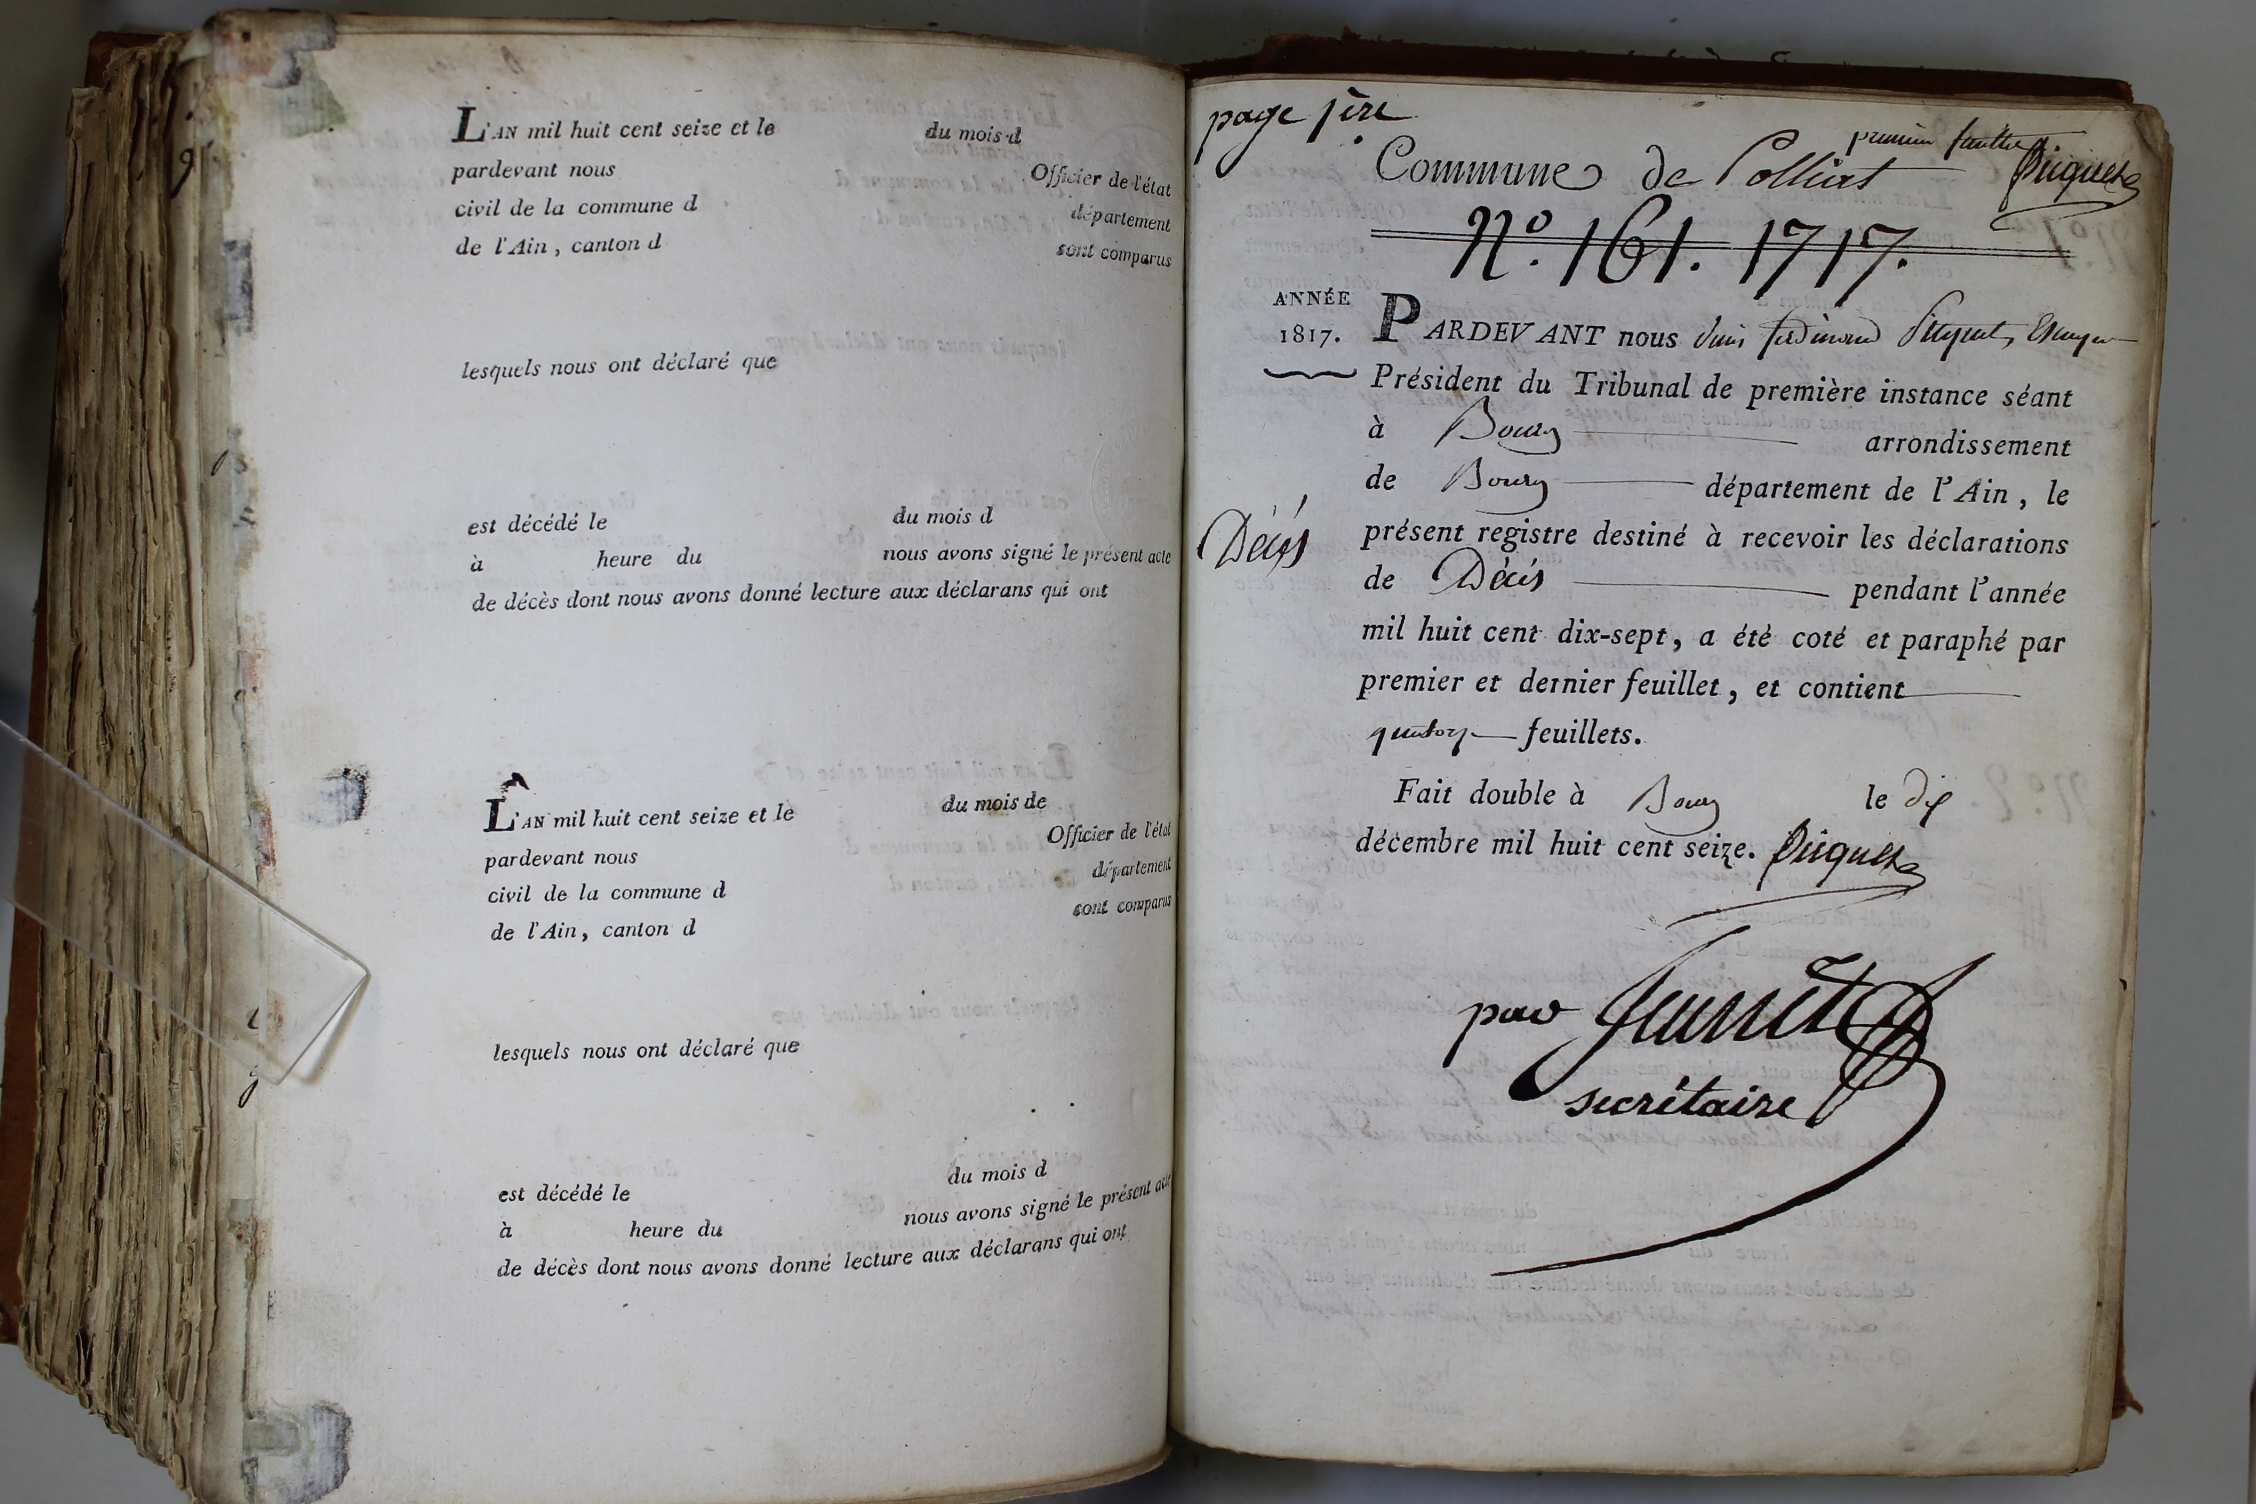 L'AN mil huit cent seize et le du mois d
pardevant nous Officier de l'état
civil de la commune d département
de l'Ain, canton d sont comparus
lesquels nous ont déclaré que
est décédé le du mois d
à heure du nous avons signé le présent acte
de décès dont nous avons donné lecture aux déclarans qui ont
L'AN mil huit cent seize et le du mois de
pardevant nous Officier de l'état
civil de la commune d département
de l'Ain, canton d sont comparus
lesquels nous ont déclaré que
est décédé le du mois d
à heure du nous avons signé le présent acte
de décès dont nous avons donné lecture aux déclarans qui ont
page 1ère
premier
Commune de Polliat
N.° 161. 1717.
ANNÉE
1817.
PARDEVANT nous ferdinand
Président du Tribunal de première instance séant
à Bourg arrondissement
de Bourg département de l'Ain, le
présent registre destiné à recevoir les déclarations
Décès
de Décès pendant l'année
mil huit cent dix-sept, a été coté et paraphé par
premier et dernier feuillet, et contient
quatorze feuillets.
Fait double à Bourg le dix
décembre mil huit cent seize.
par
secrétaire